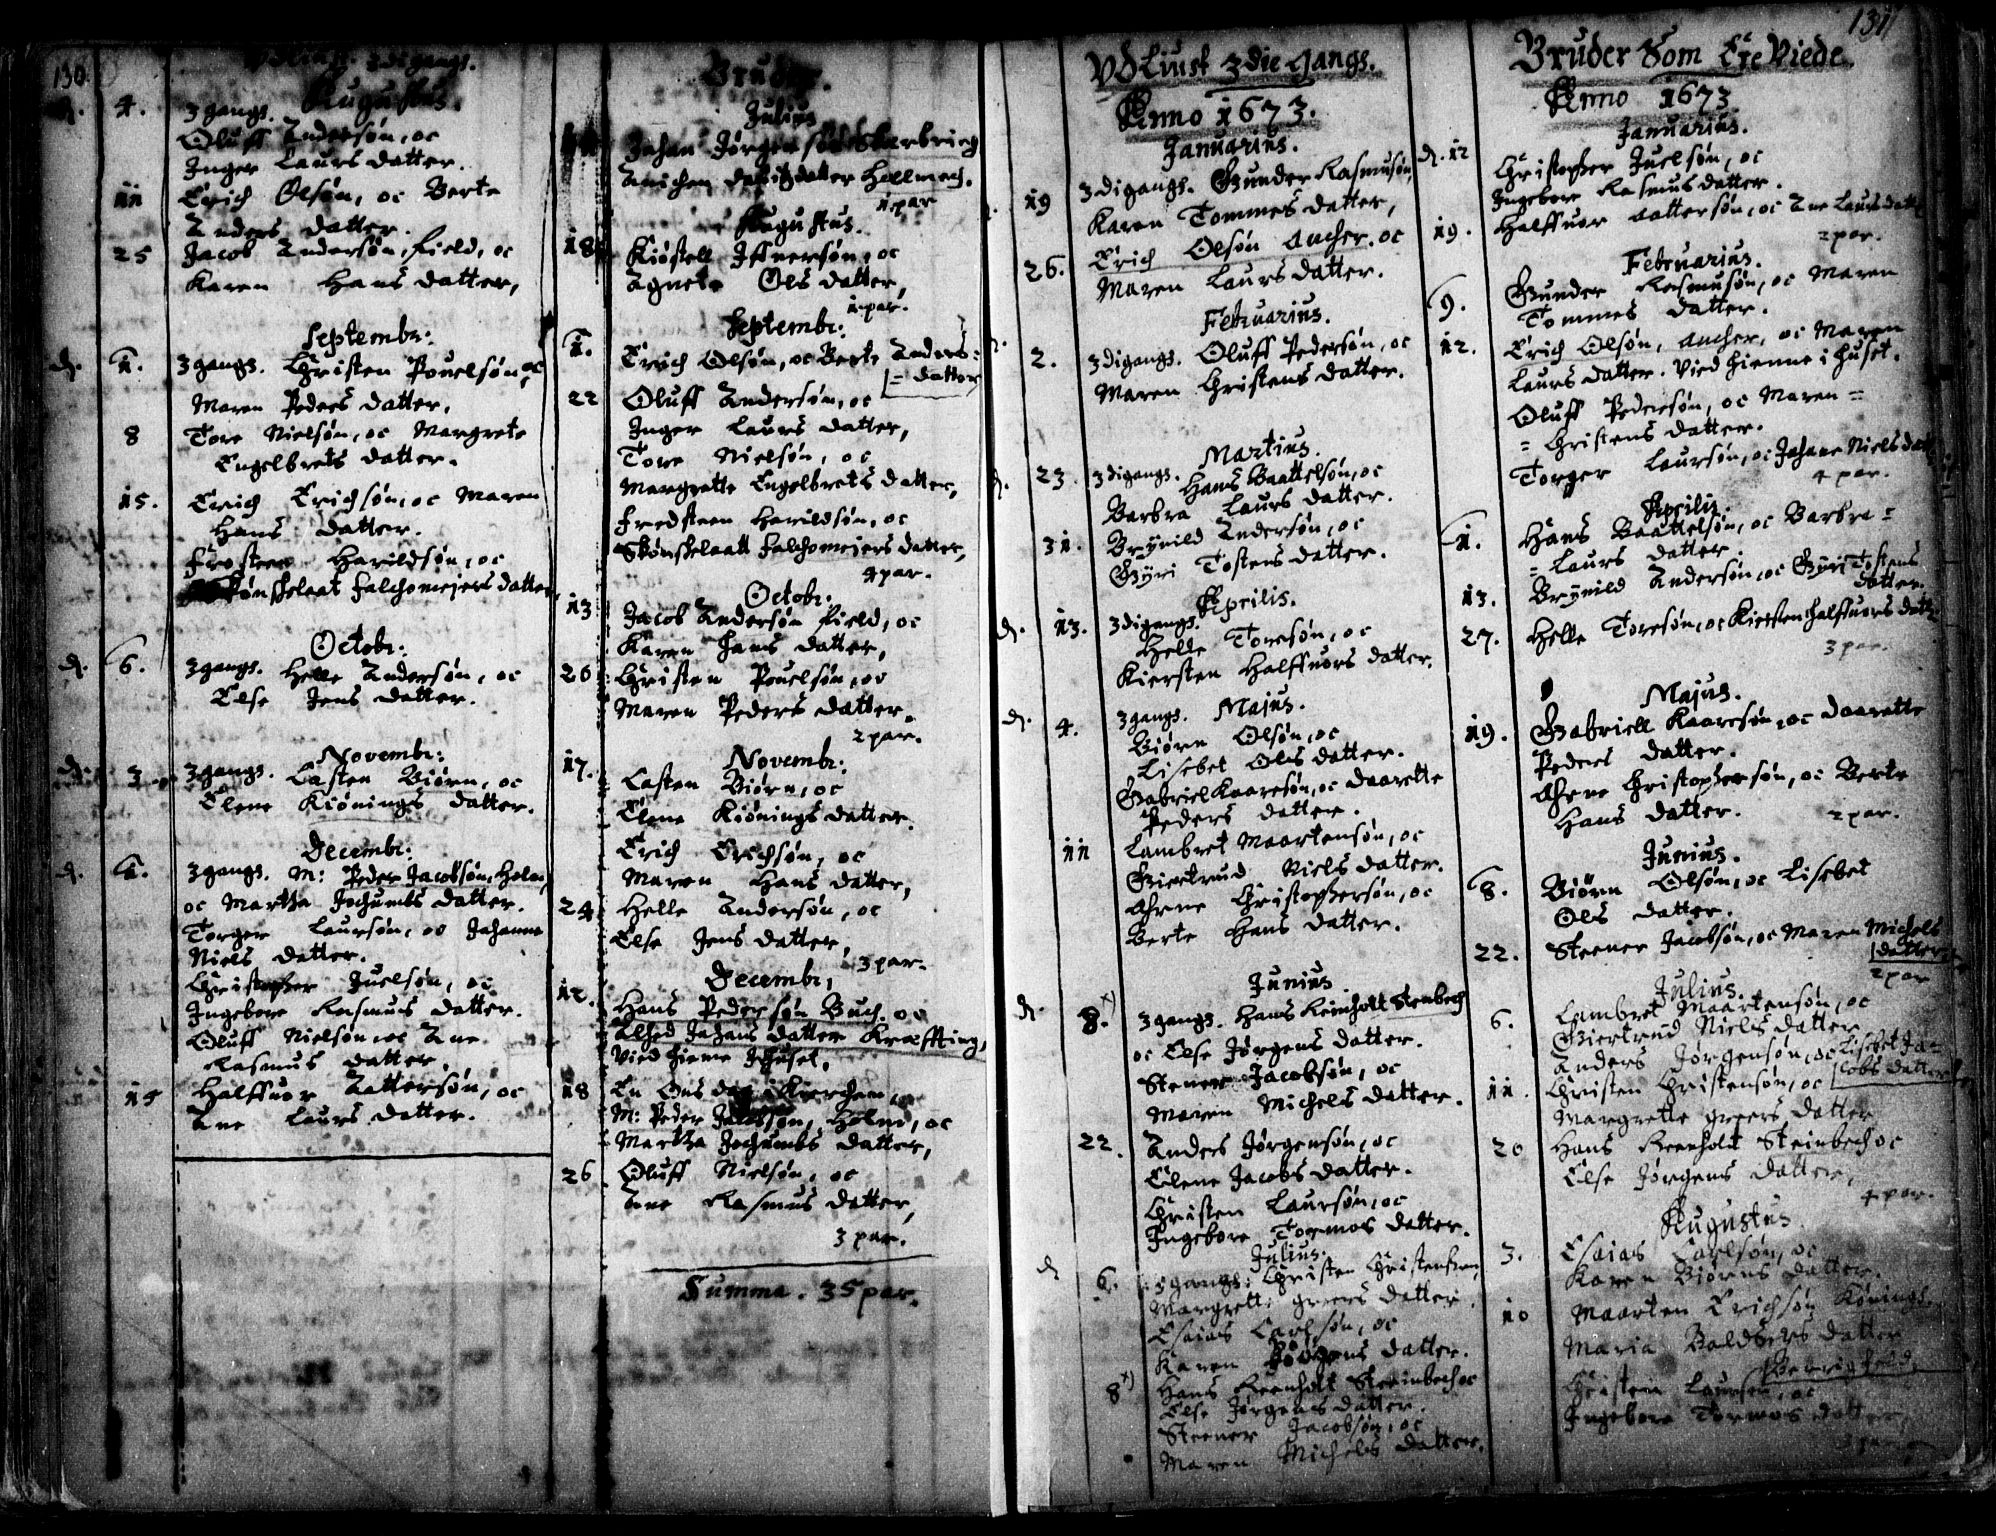 130.
3die gangs.
Augustus.
d. 4. 3 gangs.
Oluff Andersøn, oc
Inger Laurs datter.
11 Erich Olsøn, oc Berte
Anders datter.
25 Jacob Andersøn, field, oc
Karen Hans datter,
Septembr:
d. 1. 3 gangs. Christen Pouelsøn, oc
Maren Peders datter.
8 Tore Nielsøn, oc Margrete
Engelbrets datter.
15. Erich Erichsøn, oc Maren
Hans datter.
Frosteen Harildsøn, oc
Skønskelaat Falchomejers datter
Octobr:
d. 6. 3 gangs. Helle Andersøn, oc
Else Jens datter.
Novembr:
d. 3 3 gangs. Casten Biørn, oc
Elene Kiønings datter.
Decembr:
d. 1. 3 gangs. M: Peder Jacobsøn, Holm,
oc Martha Jochumbs datter.
Torger Laursøn, oc Johanne
Niels datter.
Christopher Juelsøn, oc
Ingebore Rasmus datter.
Oluff Nielsøn, oc Ane
Rasmus datter.
15 Halffuor Aattersøn, oc
Ane Laurs datter.
Bruder.
Julius
Johan Jørgensøn
Anichen Davitzdatter Hellmech.
1 par
Augustus.
18 Kiøstell Iffuersøn, oc
Agnete Ols datter,
1 par.
Septembr:
1. Erich Olsøn, oc Berte Anders=
= datter
22 Oluff Andersøn, oc
Inger Laurs datter,
Tore Nielsøn, oc
Margrette Engelbrets datter,
Fredsteen Harildsøn, oc
Skønskelaatt Falchomejers datter,
4 par.
Octobr:
13 Jacob Andersøn field, oc
Karen Hans datter,
26 Christen Pouelsøn, oc
Maren Peders datter.
2 par.
Novembr:
17. Casten Biørn, oc
Elene Kiønings datter.
Erich Erichsøn, oc
Maren Hans datter,
24 Helle Andersøn, oc
Else Jens datter,
3 par.
Decembr,
12. Hans Pedersøn Buch. oc
Alhed Johans datter Kræffting,
Vied hieme i huset.
18 En Ons dag i Kierchen,
M: Peder Jacobsøn, Holm, oc
Martha Jochumbs datter,
26 Oluff Nielsøn, oc
Ane Rasmus datter,
3 par.
Summa. 35 par.
131
VdLiust 3die Gangs.
Anno 1673.
Januarius.
19 3die gangs. Gunder Rasmusøn,
Karen Tommes datter,
26. Erich Olsøn Ancher. oc
Maren Laurs datter.
Februarius.
2. 3die gangs. Oluff Pedersøn, oc
Maren Christens datter.
Martius.
23. 3die gangs. Hans Baattelsøn, oc
Barbra Laurs datter.
31. Brynild Andersøn, oc
Gyri Tostens datter.
Aprilis.
d. 13. 3die gangs.
Helle Toresøn, oc
Kiersten Halffuors datter.
Majus.
d. 4. 3 gangs.
Biørn Olsøn, oc
Lisebet Ols datter.
Gabriel Kaaresøn, oc Daarette
Peders datter.
11 Lambret Maartensøn, oc
Giertrud Niels datter.
Ahrne Christophersøn, oc
Berte Hans datter.
Junius.
d. 8. x) 3 gangs. Hans Reinholt Stenbech
oc Else Jørgens datter.
Stener Jacobsøn, oc
Maren Michels datter.
22. Anders Jørgensøn, oc
Elene Jacobs datter.
Christen Laursøn, oc
Ingebore Tormos datter.
Julius.
d 6. 3 gangs: Christen Christensen,
Margrette Greers datter.
Esaias Carlsøn, oc
Karen datter.
8 x) Hans Reenholt Steinbech oc
Else Jørgens datter.
Steener Jacobsøn, oc
Maren Michels datter.
Bruder Som Ere Viede.
Anno 1673
Januarius.
d. 12 Christopher Juelsøn, oc
Ingebore Rasmusdatter.
19. Halffuor Aattersøn, oc Ane Laurs datter
2 par.
Februarius.
9. Gunder Rasmusøn, oc Maren
Tommes datter.
12. Erich Olsøn, Ancher, oc Maren
Laurs datter. Vied hiemme i huset.
Oluff Pedersøn, oc Maren =
= Christens datter.
Torger Laursøn, oc Johane Niels datt
4 par.
Aprilis.
1. Hans Baattelsøn, oc Barbra =
= Laurs datter.
13. Brynild Andersøn, oc Gyri Tostens
datter.
27. Helle Toresøn, oc Kiersten Halffuors datt
3 par.
Majus.
19. Gabriell Kaaresøn, oc Daarette
Peders datter.
Ahrne Christophersøn, oc Berte
Hans datter. 2 par.
Junius.
8. Biørn Olsøn, oc Lisebet
Ols datter.
22. Steener Jacobsøn, oc Maren Michels
datter
2 par
Julius.
6. Lambret Maartensøn, oc
Giertrud Niels datter
Anders Jørgensøn, oc Lisebet Ja=
cobs datter
11. Christen Christensøn, oc
Margrette Greers datter
20 Hans Reenholt Steinbech oc
Else Jørgens datter,
4 par.
Augustus
3. Esaias Carlsøn, oc
Karen Biørns datter.
10 Maarten Erichsøn Kønings
Maria Baldsers datter
Christen Laursøn, oc
Ingebore Tormos datter,
3 par